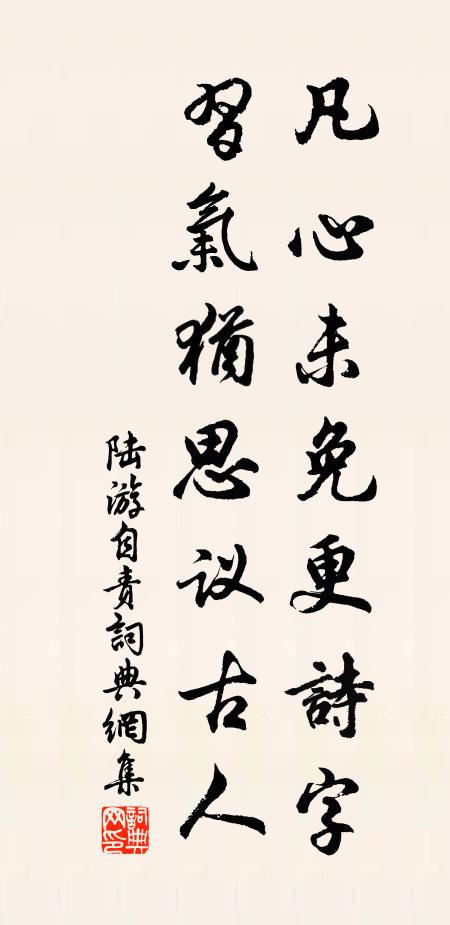 凡心未免更詩字
習氣猶思议古人
陆游自责詞典網集
詞典网印